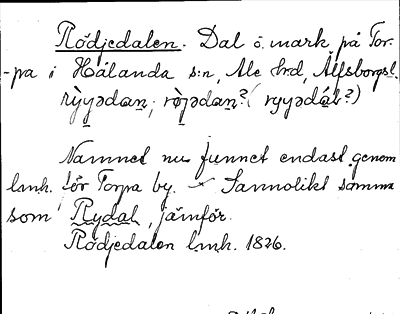 Rödjedalen. Dal o. mark på Tor-
-pa i Hålanda s:n, Ale hrd, Älfsborgs l.
rỳyədan, rö̀jədan? (ryyədál?)
Namnet nu funnet endast genom
lmh. för Torpa by. – Sannolikt samma
som Rydal, jämför.
Rödjedalen lmh. 1826.